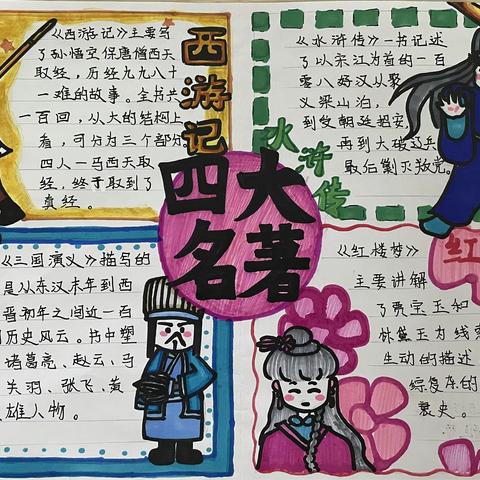 《西游记》主要写
了孙悟空保唐僧西天
取经，历经九九八十
一难的故事。全书共
一百回，从大的结构上
看，可分为三个部分
四人一马西天取
经，终于取到了
真经。
西游记
《水浒传》一书记述
了以宋江为首的一百
零八好汉从聚
义梁山泊，
到受朝廷招安，
再到大破辽兵
最后剿灭叛党。
水浒传
四大
名著
《三国演义》描写的
是从东汉末年到西
晋初年之间近一百
历史风云。书中塑
诸葛亮、赵云、马
关羽、张飞、黄
雄人物。
《红楼梦》
主要讲解
了贾宝玉和
林黛玉为线索
生动的描述
综复杂的
衰史。
红